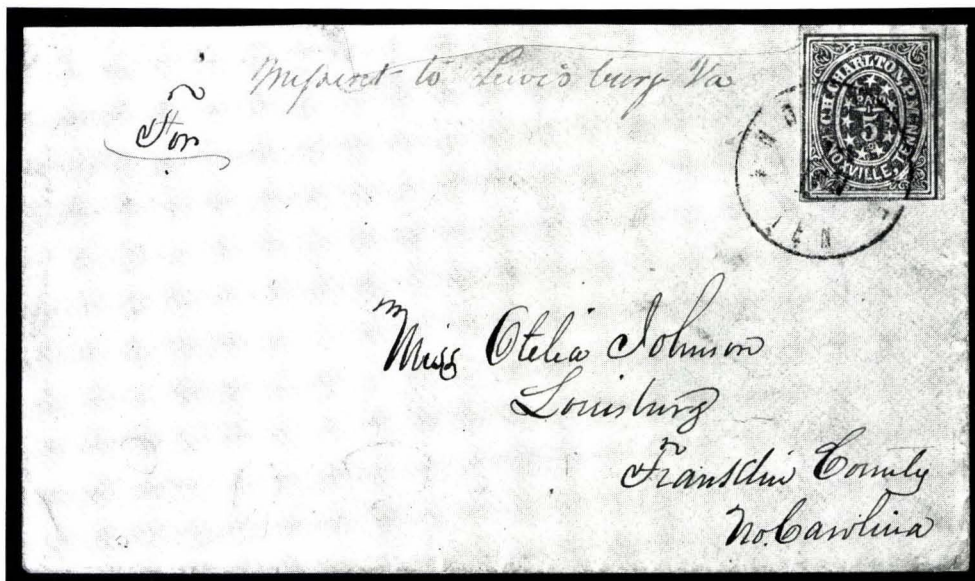 Missent to Lewisburg Va
For
C.H. CHARLTON. P.M.
PAID
5
KNOXVILLE, TENN.
TEN
Miss Otelia Johnson
Louisburg
Franklin County
No. Carolina